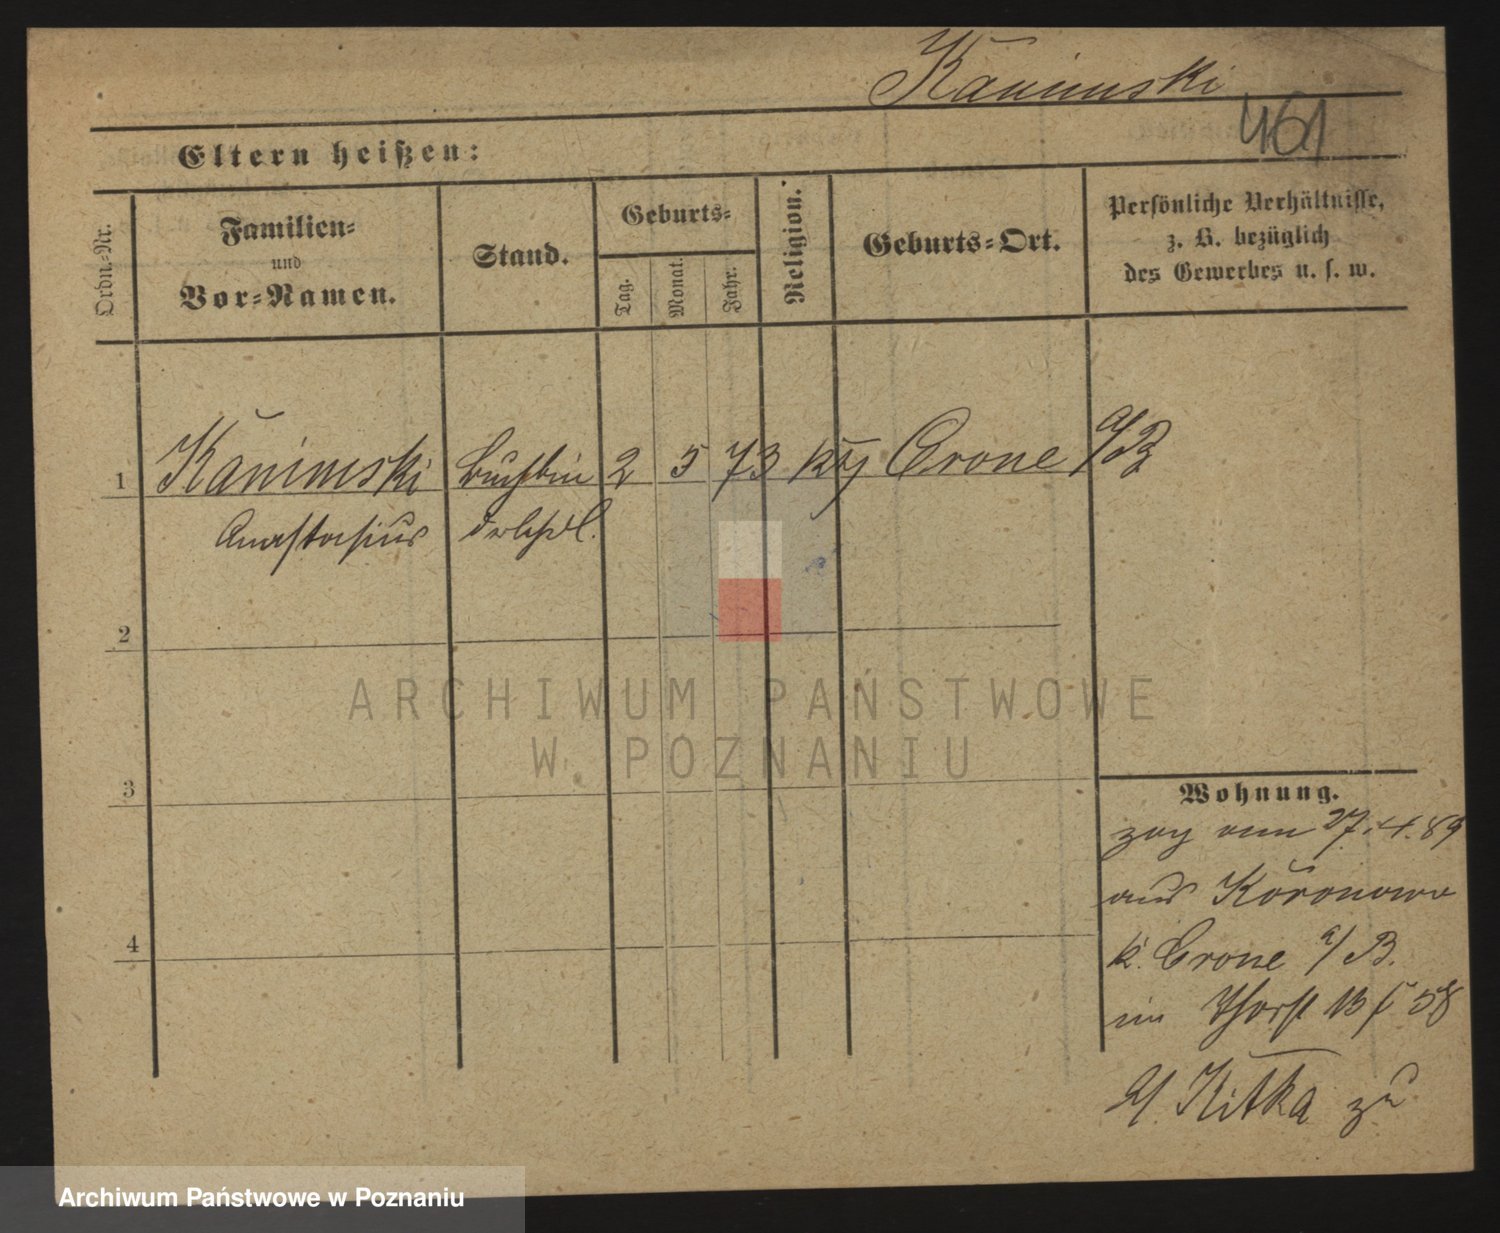 Kaminski
461
Eltern heißen:
Ordn.-Nr.
Familien-
und
Vor-Namen.
Stand.
Geburts-
Tag.
Monat.
Jahr.
Religion.
Geburts-Ort.
Persönliche Verhältnisse,
z. B. bezüglich
des Gewerbes u. s. w.
1 Kaminski Buchbin 2 5 73 Crone a/B
Anastasius
2
3
4
Wohnung.
zog am 27.4.89
aus Koronowo
Crone a/B.
im
Kitka zu
ARCHIWUM PAŃSTWOWE
W POZNANIU
Archiwum Państwowe w Poznaniu